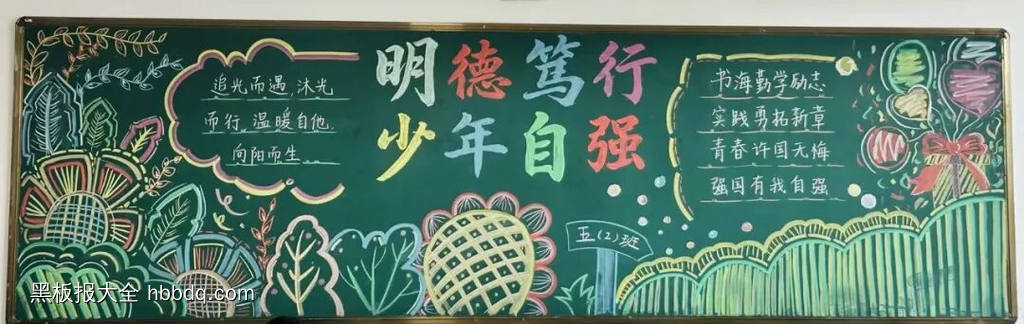 明德笃行
少年自强
追光而遇 沐光
而行 温暖自他,
向阳而生
书海勤学励志
实践勇拓新章
青春许国无悔
强国有我自强
五(2)班
黑板报大全 hbbdq.com